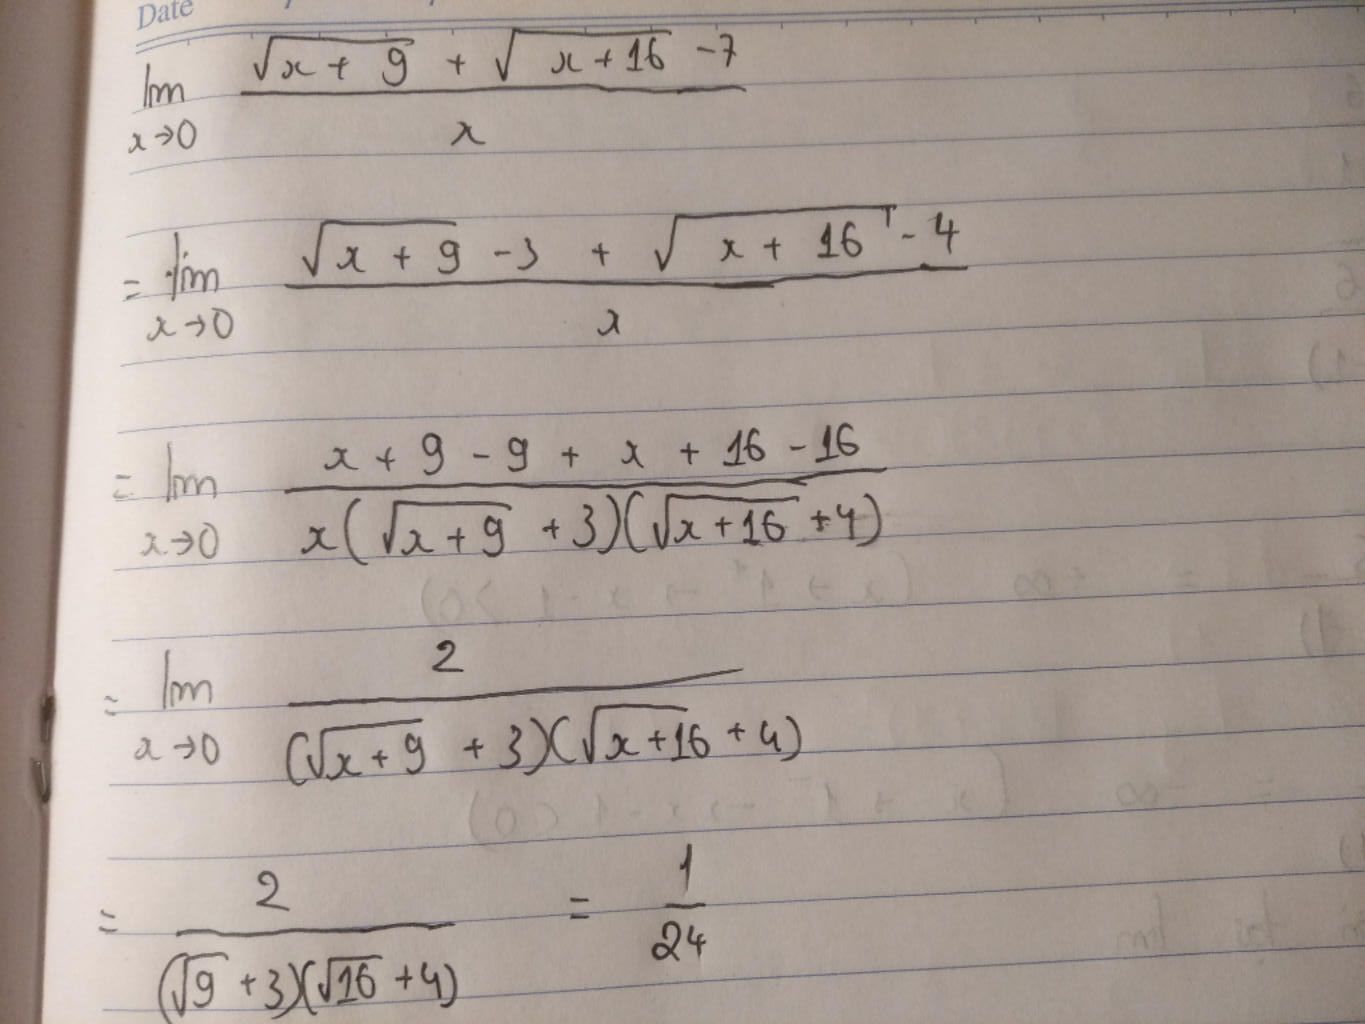 Date
lim x→0 (√(x + 9) + √(x + 16) - 7) / x
= lim x→0 (√(x + 9) - 3 + √(x + 16) - 4) / x
= lim x→0 (x + 9 - 9 + x + 16 - 16) / (x(√(x + 9) + 3)(√(x + 16) + 4))
= lim x→0 2 / ((√(x + 9) + 3)(√(x + 16) + 4))
= 2 / ((√9 + 3)(√16 + 4)) = 1 / 24